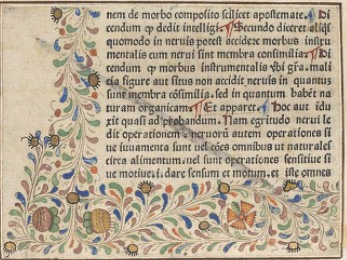 nem de morbo composito scilicet apostemate. ¶ Di
cendum ꝙ dedit intelligi. ¶ Secundo diceret aliqs
quomodo in neruis potest accidere morbus instru
mentalis cum nerui sint membra consimilia. ¶ Di
cendum ꝙ morbus instrumentalis ꝟbi gr̃a. mali
cia figure aut situs non accidit neruis in quantum
sunt membra cōsimilia. sed in quantum habēt na
turam organicam. ¶ Et apparet. ¶ Hoc aut idu
xit quasi ad probandum. Nam egritudo nerui le
dit operationem. neruorū autem operationes si
ue iuuamenta sunt uel cōes omnibus ut naturales
circa alimentum. uel sunt operationes sensitiue si
ue motiue. s. dare sensum et motum. et iste omnes